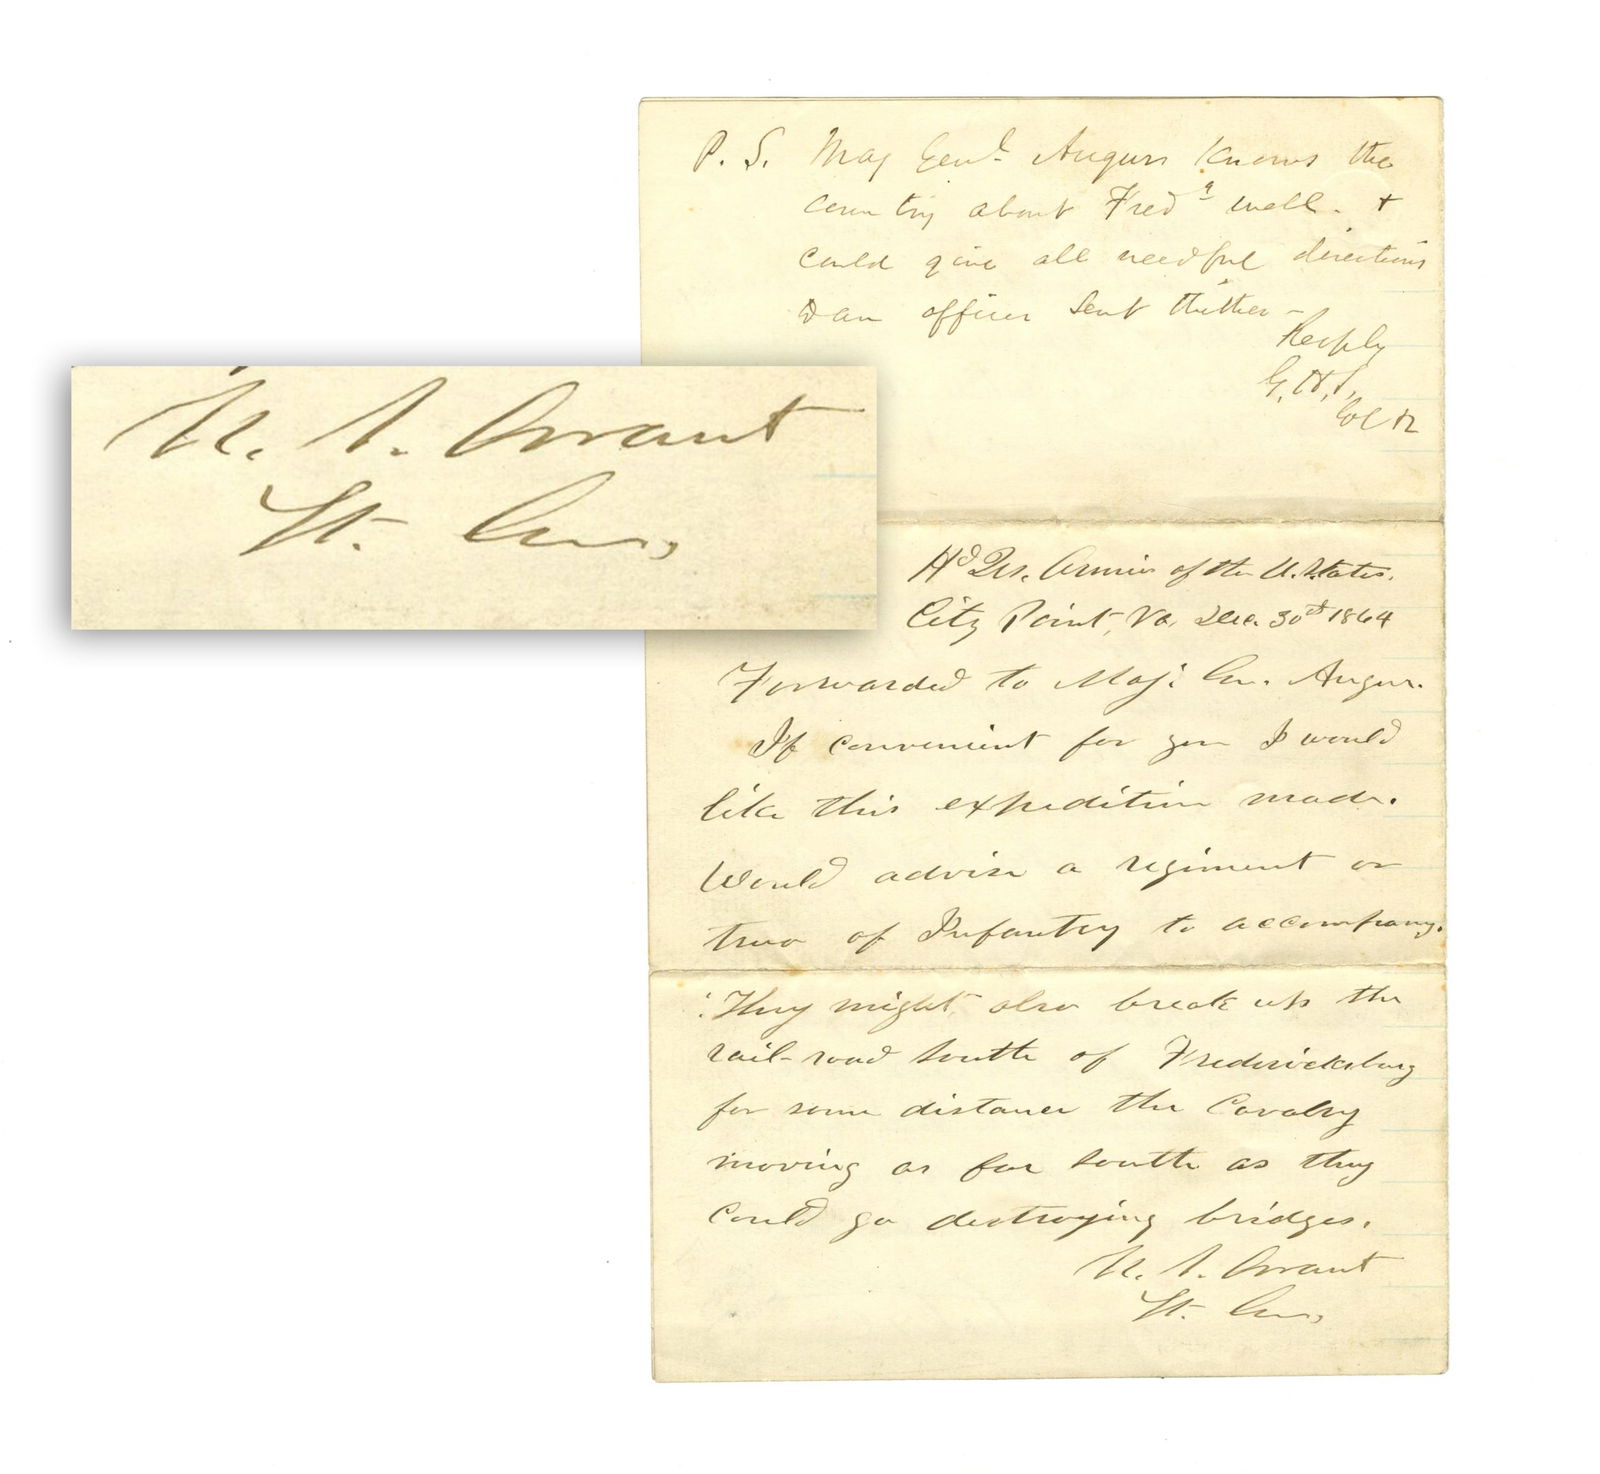 P. S. Maj Genl. Augur knows the
country about Fredg well. +
could give all needful directions
to an officer sent thither —
Resply
G. H. S.
Col &c
Hd Qrs. Armies of the U. States,
City Point, Va. Dec. 30th 1864
Forwarded to Maj. Gn. Augur.
If convenient for you I would
like this expedition made.
Would advise a regiment or
two of Infantry to accompany.
They might also break up the
rail-road south of Fredericksburg
for some distance the Cavalry
moving as far south as they
could go destroying bridges.
U. S. Grant
Lt. Gn.
U. S. Grant
Lt. Gn.